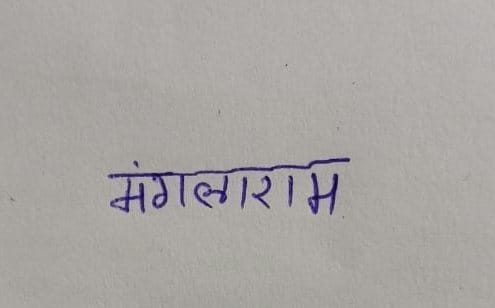 मंगलाराम